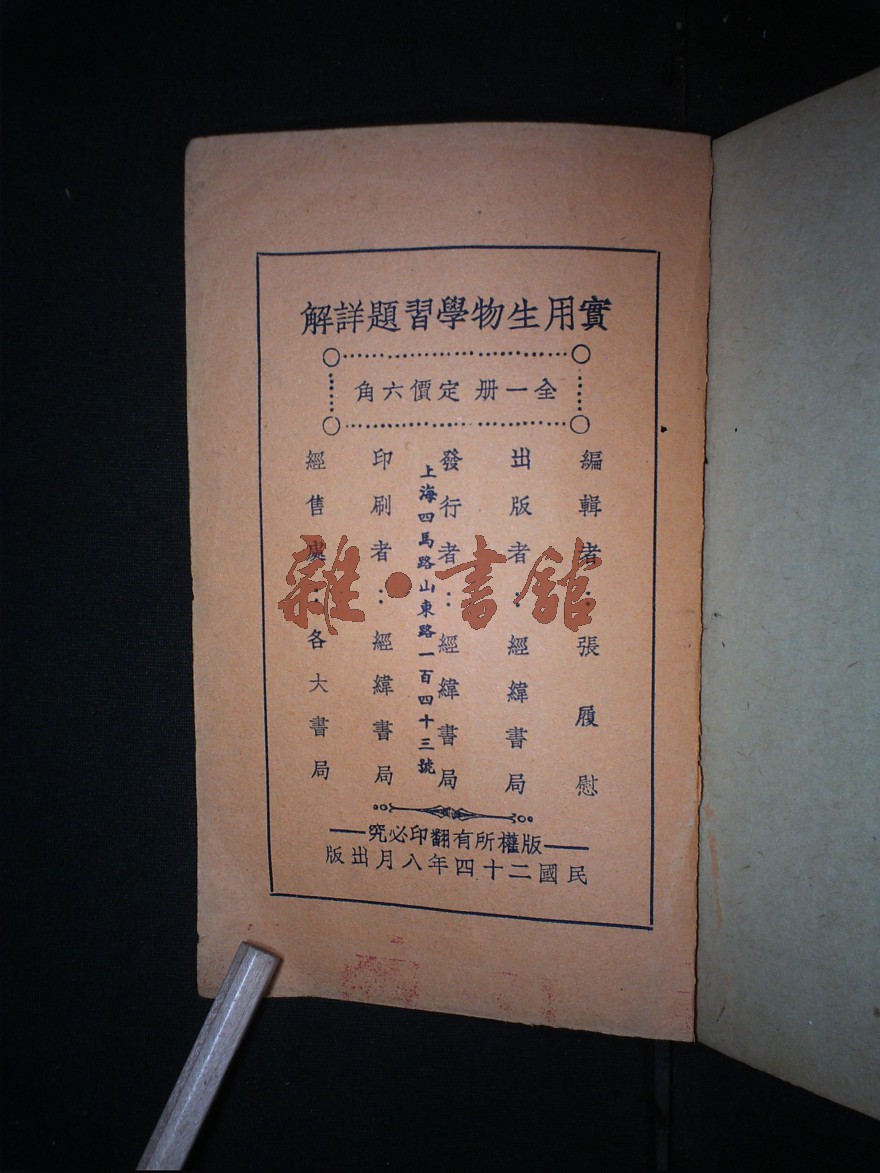 實用生物學習題詳解
全一册 定價六角
編輯者：張履慰
出版者：經緯書局
發行者：經緯書局
上海四馬路山東路一百四十三號
印刷者：經緯書局
經售處：各大書局
版權所有翻印必究
民國二十四年八月出版
雜·書館